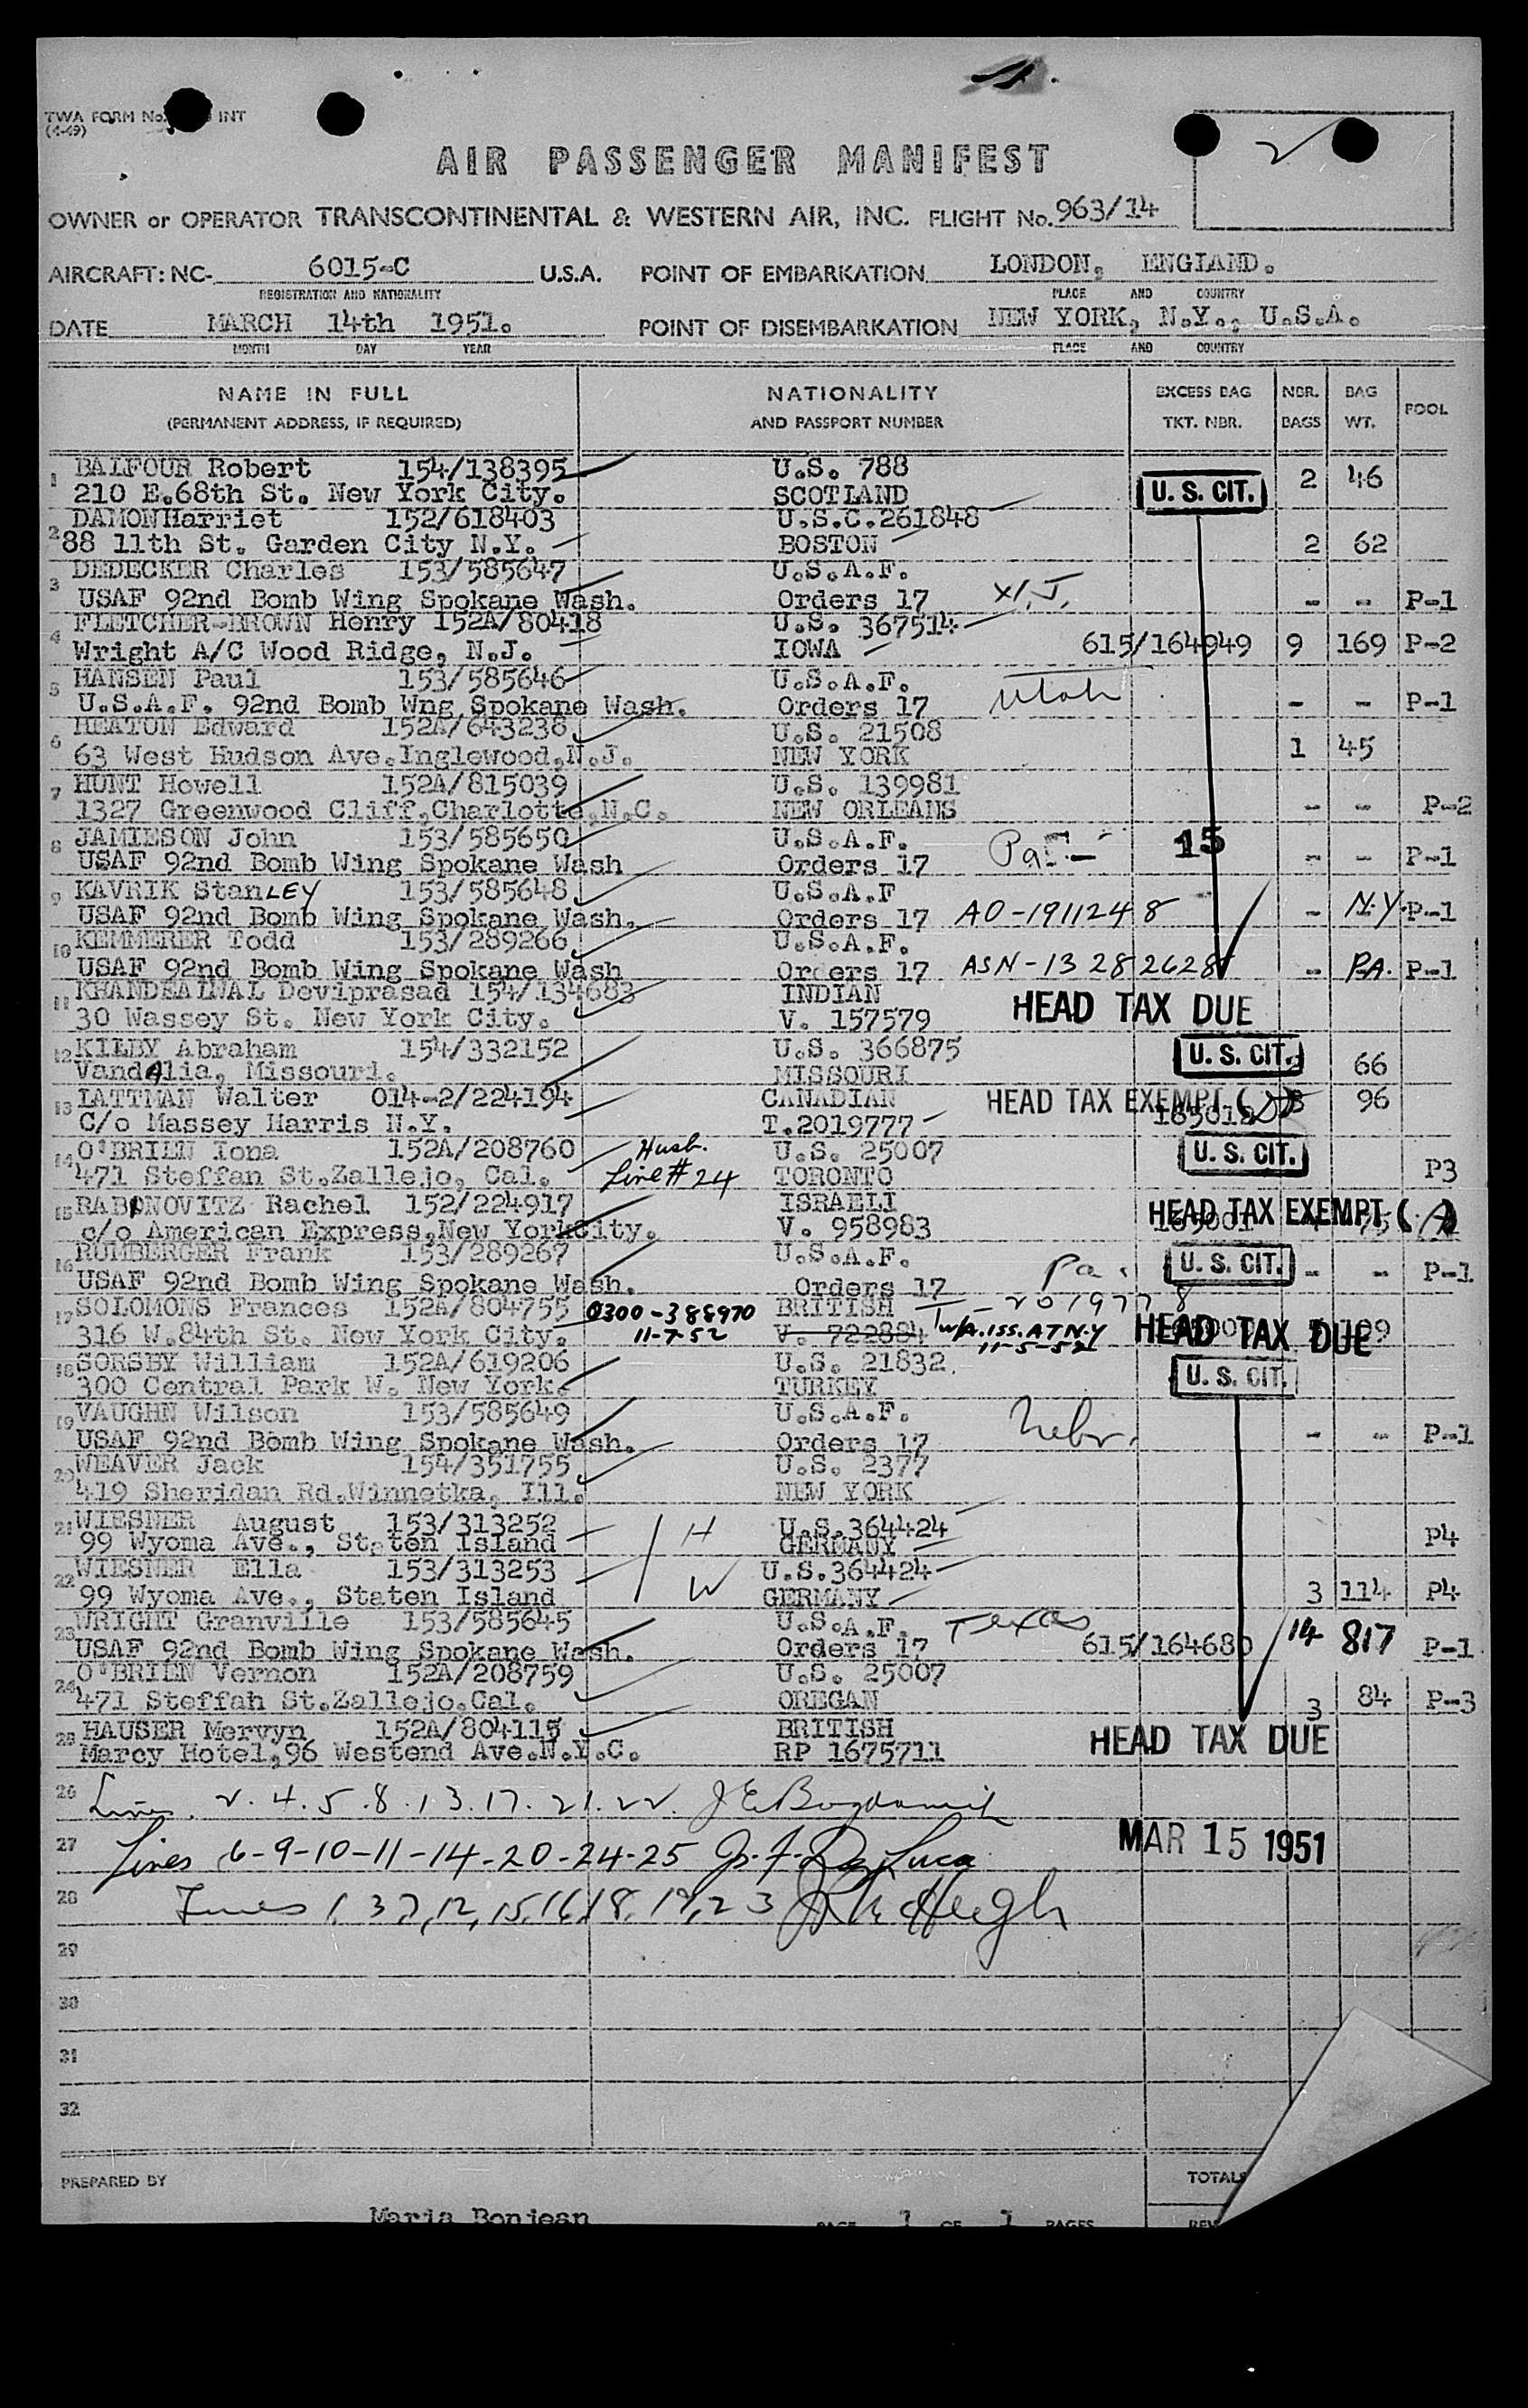 TWA FORM No. INT
(4-49)
2
AIR PASSENGER MANIFEST
OWNER or OPERATOR TRANSCONTINENTAL & WESTERN AIR, INC. FLIGHT No. 963/14
AIRCRAFT: NC- 6015-C U.S.A. POINT OF EMBARKATION LONDON, ENGLAND.
REGISTRATION AND NATIONALITY PLACE AND COUNTRY
DATE MARCH 14th 1951. POINT OF DISEMBARKATION NEW YORK, N.Y., U.S.A.
MONTH DAY YEAR PLACE AND COUNTRY
NAME IN FULL NATIONALITY EXCESS BAG NBR. BAG POOL
(PERMANENT ADDRESS, IF REQUIRED) AND PASSPORT NUMBER TKT. NBR. BAGS WT.
1 BALFOUR Robert 154/138395 U.S. 788 U. S. CIT. 2 46
210 E.68th St. New York City. SCOTLAND
2 DAMONHarriet 152/618403 U.S.C.261848
88 11th St. Garden City N.Y. BOSTON 2 62
3 DEDECKER Charles 153/585647 U.S.A.F.
USAF 92nd Bomb Wing Spokane Wash. Orders 17 - - P-1
4 FLETCHER-BROWN Henry 152A/80418 U.S. 367514
Wright A/C Wood Ridge, N.J. IOWA 615/164949 9 169 P-2
5 HANSEN Paul 153/585646 U.S.A.F.
U.S.A.F. 92nd Bomb Wng Spokane Wash. Orders 17 Utah - - P-1
6 HEATON Edward 152A/643238 U.S. 21508
63 West Hudson Ave.Inglewood,N.J. NEW YORK 1 45
7 HUNT Howell 152A/815039 U.S. 139981
1327 Greenwood Cliff,Charlotte,N.C. NEW ORLEANS - - P-2
8 JAMIESON John 153/585650 U.S.A.F. 15
USAF 92nd Bomb Wing Spokane Wash Orders 17 Pa. - - P-1
9 KAVRIK StanLEY 153/585648 U.S.A.F
USAF 92nd Bomb Wing Spokane Wash. Orders 17 AO-1911248 - N.Y. P-1
10 KEMMERER Todd 153/289266 U.S.A.F.
USAF 92nd Bomb Wing Spokane Wash Orders 17 ASN-13282628 - PA. P-1
11 KHANDEALWAL Deviprasad 154/134683 INDIAN HEAD TAX DUE
30 Wassey St. New York City. V. 157579
12 KILBY Abraham 154/332152 U.S. 366875 U. S. CIT. 66
VandAlia, Missouri. MISSOURI
13 LATTMAN Walter 014-2/224194 CANADIAN HEAD TAX EXEMPT ( ) 96
C/o Massey Harris N.Y. T.2019777
14 O'BRIEN Iona 152A/208760 Husb. U.S. 25007 U. S. CIT.
471 Steffan St.Zallejo, Cal. Line # 24 TORONTO P3
15 RABINOVITZ Rachel 152/224917 ISRAELI HEAD TAX EXEMPT (A)
c/o American Express,New YorkCity. V. 958983
16 RUMBERGER Frank 153/289267 U.S.A.F. U. S. CIT.
USAF 92nd Bomb Wing Spokane Wash. Orders 17 Pa. - - P-1
17 SOLOMONS Frances 152A/804755 0300-388970 BRITISH T-2019778 HEAD TAX DUE
316 W.84th St. New York City. 11-7-52 V. 722884 ISS. AT N.Y 11-5-52
18 SORSBY William 152A/619206 U.S. 21832. U. S. CIT.
300 Central Park W. New York. TURKEY
19 VAUGHN Wilson 153/585649 U.S.A.F.
USAF 92nd Bomb Wing Spokane Wash. Orders 17 Nebr. - - P-1
20 WEAVER Jack 154/351755 U.S. 2377
419 Sheridan Rd.Winnetka, Ill. NEW YORK
21 WIESNER August 153/313252 H U.S.364424
99 Wyoma Ave., Staten Island GERMANY P4
22 WIESNER Ella 153/313253 W U.S.364424
99 Wyoma Ave., Staten Island GERMANY 3 114 P4
23 WRIGHT Granville 153/585645 U.S.A.F. Texas
USAF 92nd Bomb Wing Spokane Wash. Orders 17 615/164680 14 817 P-1
24 O'BRIEN Vernon 152A/208759 U.S. 25007
471 Steffah St.Zallejo.Cal. OREGAN 3 84 P-3
25 HAUSER Mervyn 152A/804115 BRITISH HEAD TAX DUE
Marcy Hotel,96 Westend Ave.N.Y.C. RP 1675711
26 Lines 2.4.5.8.13.17.21.22.
27 Lines 6-9-10-11-14-20-24-25 MAR 15 1951
28 Lines 1,3,7,12,15,16,18,19,23
29
30
31
32
PREPARED BY TOTALS
Maria Bonjean PAGE 1 OF 1 PAGES